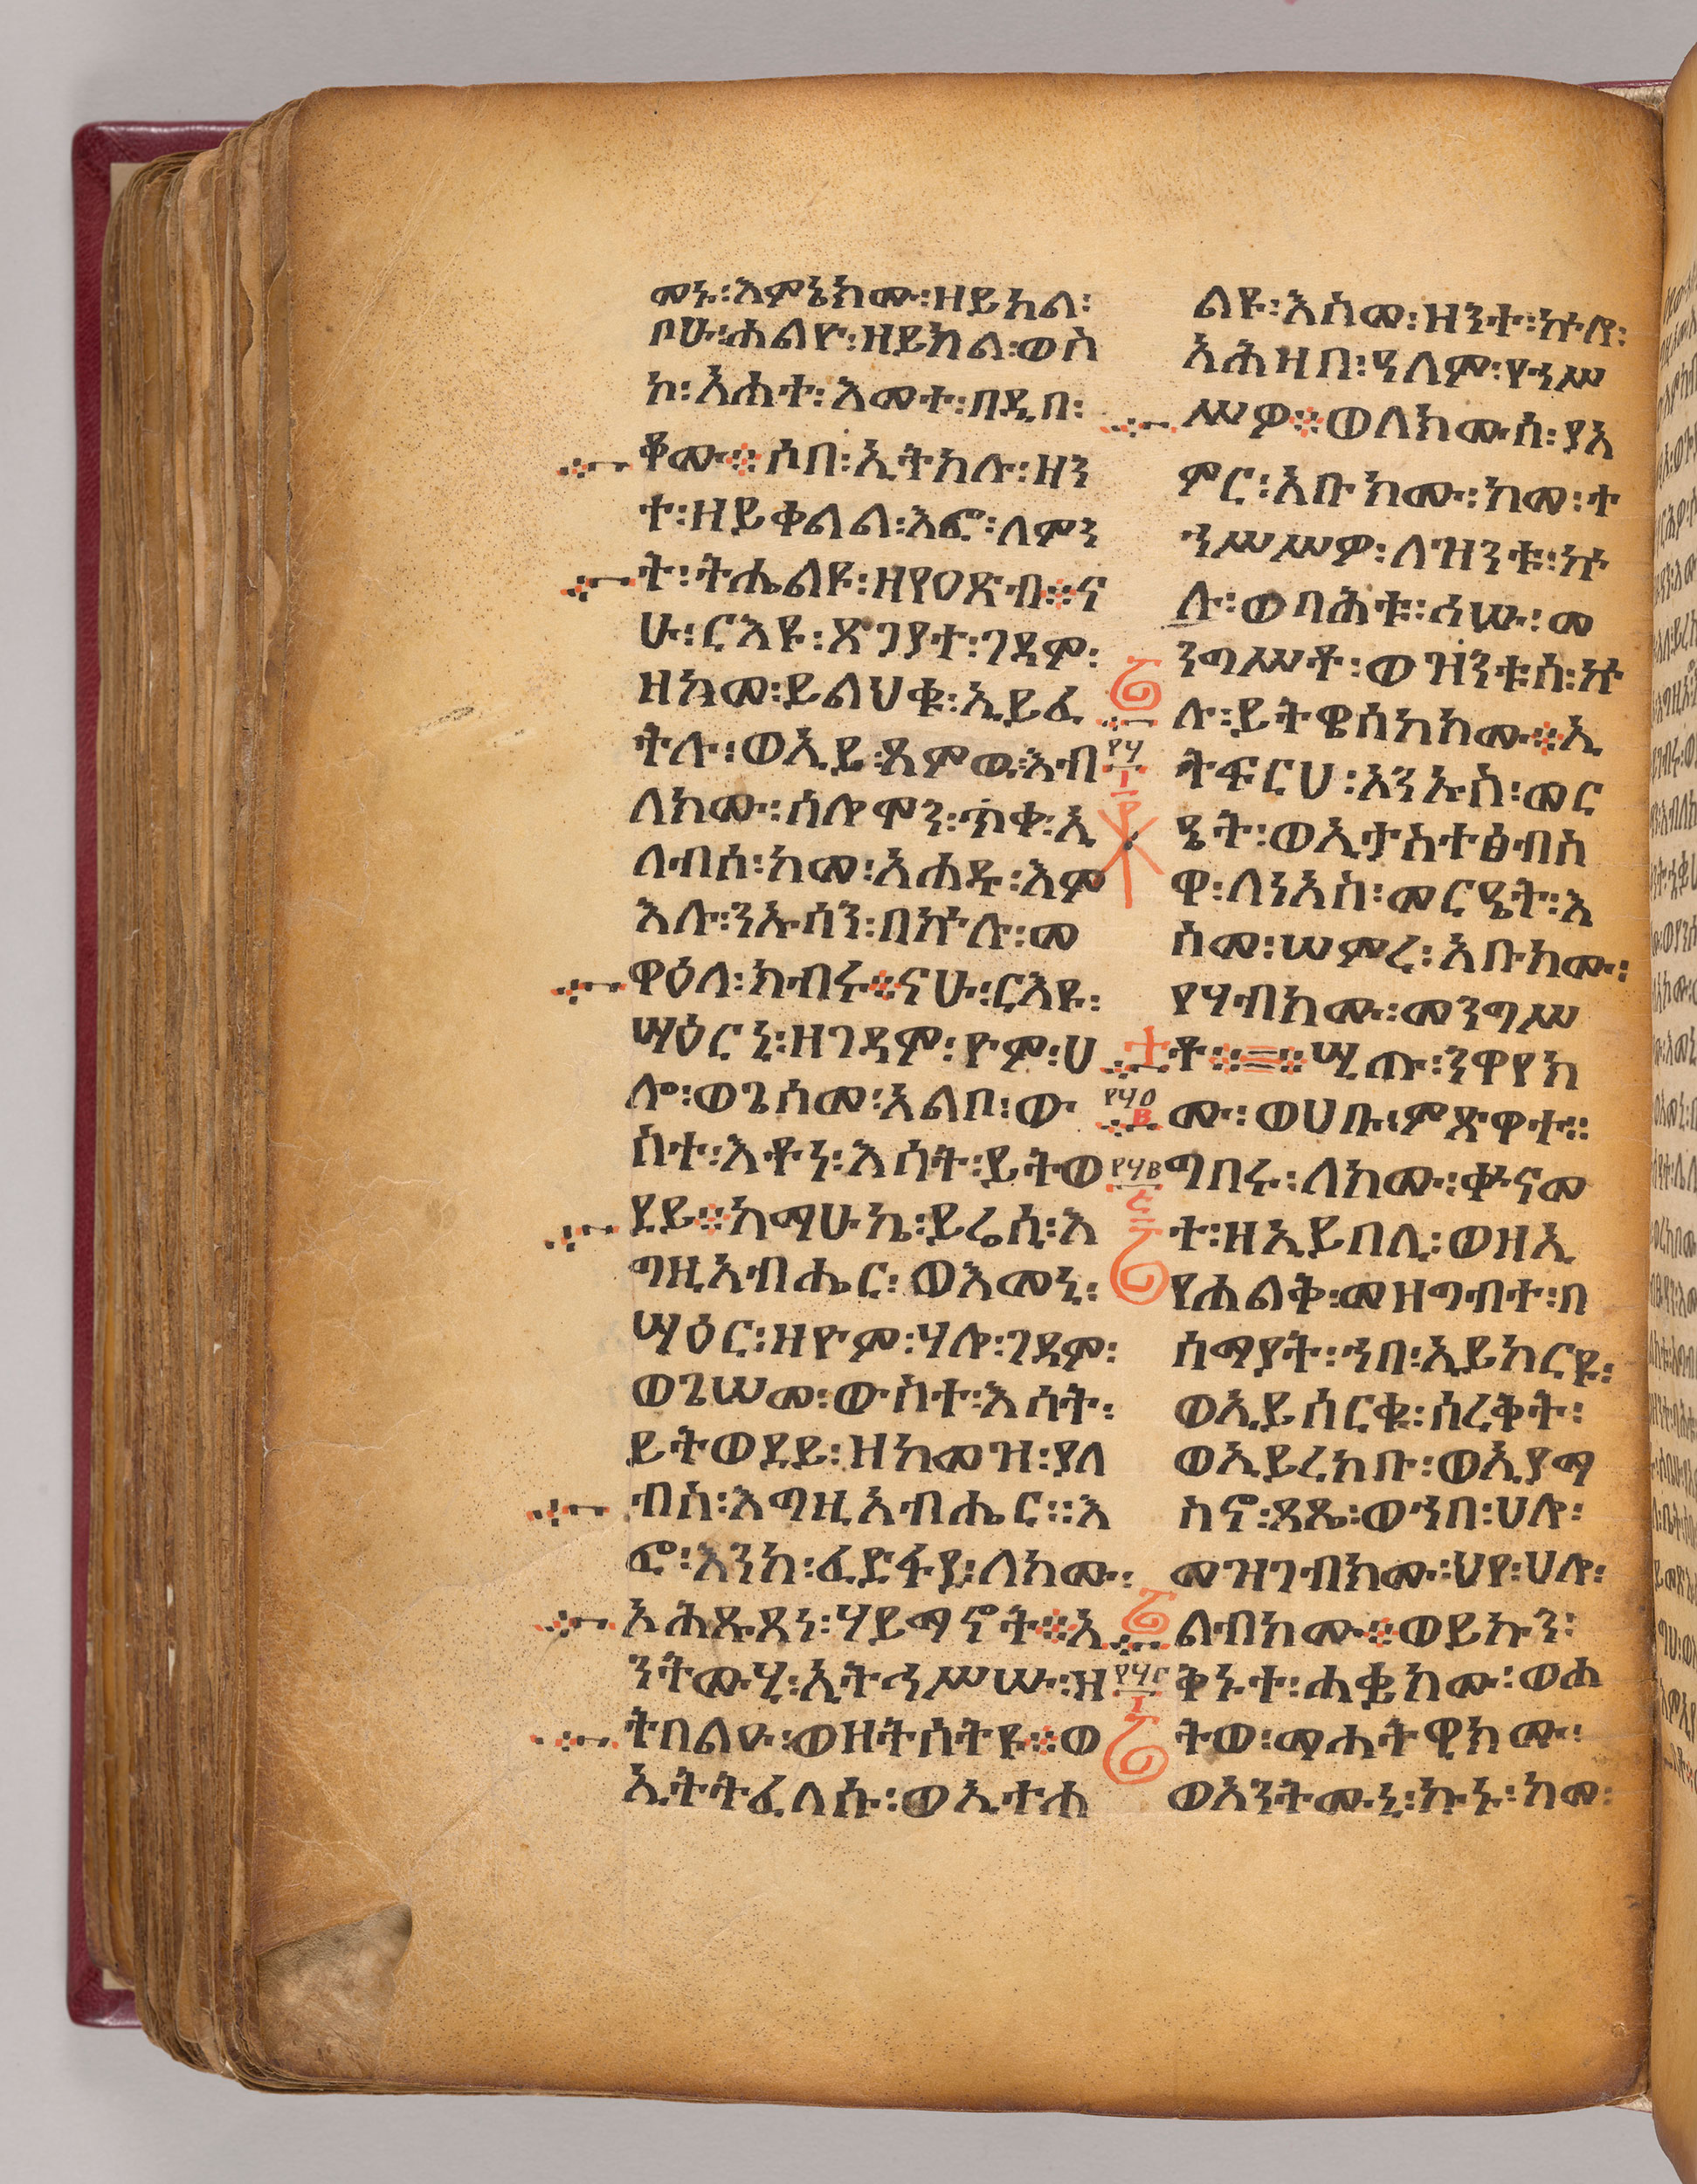 መኑ፡እምኔክሙ፡ዘይክል፡
ቦሁ፡ሐልዮ፡ዘይክል፡ወስ
ኮ፡አሐተ፡እመተ፡በዲበ፡
ቆሙ፨ሶበ፡ኢትክሉ፡ዘን
ተ፡ዘይቀልል፡እፎ፡ለምን
ት፡ትሔልዩ፡ዘየዐጽብ፨ና
ሁ፡ርእዩ፡ጽጌያተ፡ገዳም፡
ዘከመ፡ይልህቁ፡ኢይፈ
ትሉ፡ወኢይ፡ጻምዉ፡እብ
ለክሙ፡ሰሎሞን፡ጥቀ፡ኢ
ለብሰ፡ከመ፡አሐዱ፡እም
እሉ፡ንኡሰን፡በኵሉ፡መ
ዋዕለ፡ክብሩ፨ናሁ፡ርእዩ፡
ሣዕርኒ፡ዘገዳም፡ዮም፡ሀ
ሎ፡ወጌሰመ፡አልቦ፡ው
ስተ፡እቶን፡እሳት፡ይትወ
ደይ፨ከማሁኬ፡ይሬሲ፡እ
ግዚአብሔር፡ወእመኒ፡
ሣዕር፡ዘዮም፡ሃሎ፡ገዳም፡
ወጌሠመ፡ውስተ፡እሳት፡
ይትወደይ፡ዘከመዝ፡ያለ
ብስ፡እግዚአብሔር፡፡እ
ፎ፡እንከ፡ፈድፋደ፡ለክሙ፡
አሕጹጻነ፡ሃይማኖት፨አ
ንትሙሂ፡ኢትኅሥሡ፡ዘ
ትበልዑ፡ወዘትሰትዩ፨ወ
ኢትትፈለሱ፡ወኢተሐ
ልዩ፡እስመ፡ዝንተ፡ኵሎ፡
አሕዛበ፡ዓለም፡የኀሥ
ሥዎ፨ወለክሙሰ፡ያአ
ምር፡አቡክሙ፡ከመ፡ተ
ኀሥሥዎ፡ለዝንቱ፡ኵ
ሉ፡ወባሕቱ፡ኅሡ፡መ
ንግሥቶ፡ወዝንቱሰ፡ኵ
ሉ፡ይትዌሰክክሙ፨ኢ
ትፍርሀ፡አንኡስ፡ወር
ዔት፡ወኢታስተፅብስ
ዋ፡ለነአስ፡መርዔት፡እ
ስመ፡ሠምረ፡አቡክሙ፡
የሃብክሙ፡መንግሥ
ቶ፨=፨ሢጡ፡ንዋየክ
ሙ፡ወሀቡ፡ምጽዋተ፡፡
ግበሩ፡ለክሙ፡ቍናመ
ተ፡ዘኢይበሊ፡ወዘኢ
የሐልቅ፡መዝግብተ፡በ
ሰማያት፡ኀበ፡ኢይከርዩ፡
ወኢይሰርቁ፡ሰረቅት፡
ወኢይረክቡ፡ወኢያማ
ስኖ፡ጻጼ፡ወኀበ፡ሀሎ፡
መዝገብክሙ፡ህየ፡ሀሎ፡
ልብክሙ፨ወይኩን፡
ቅኑተ፡ሐቌክሙ፡ወሐ
ትወ፡መሐትዊክሙ፡
ወአንትሙኒ፡ኩኑ፡ከመ፡